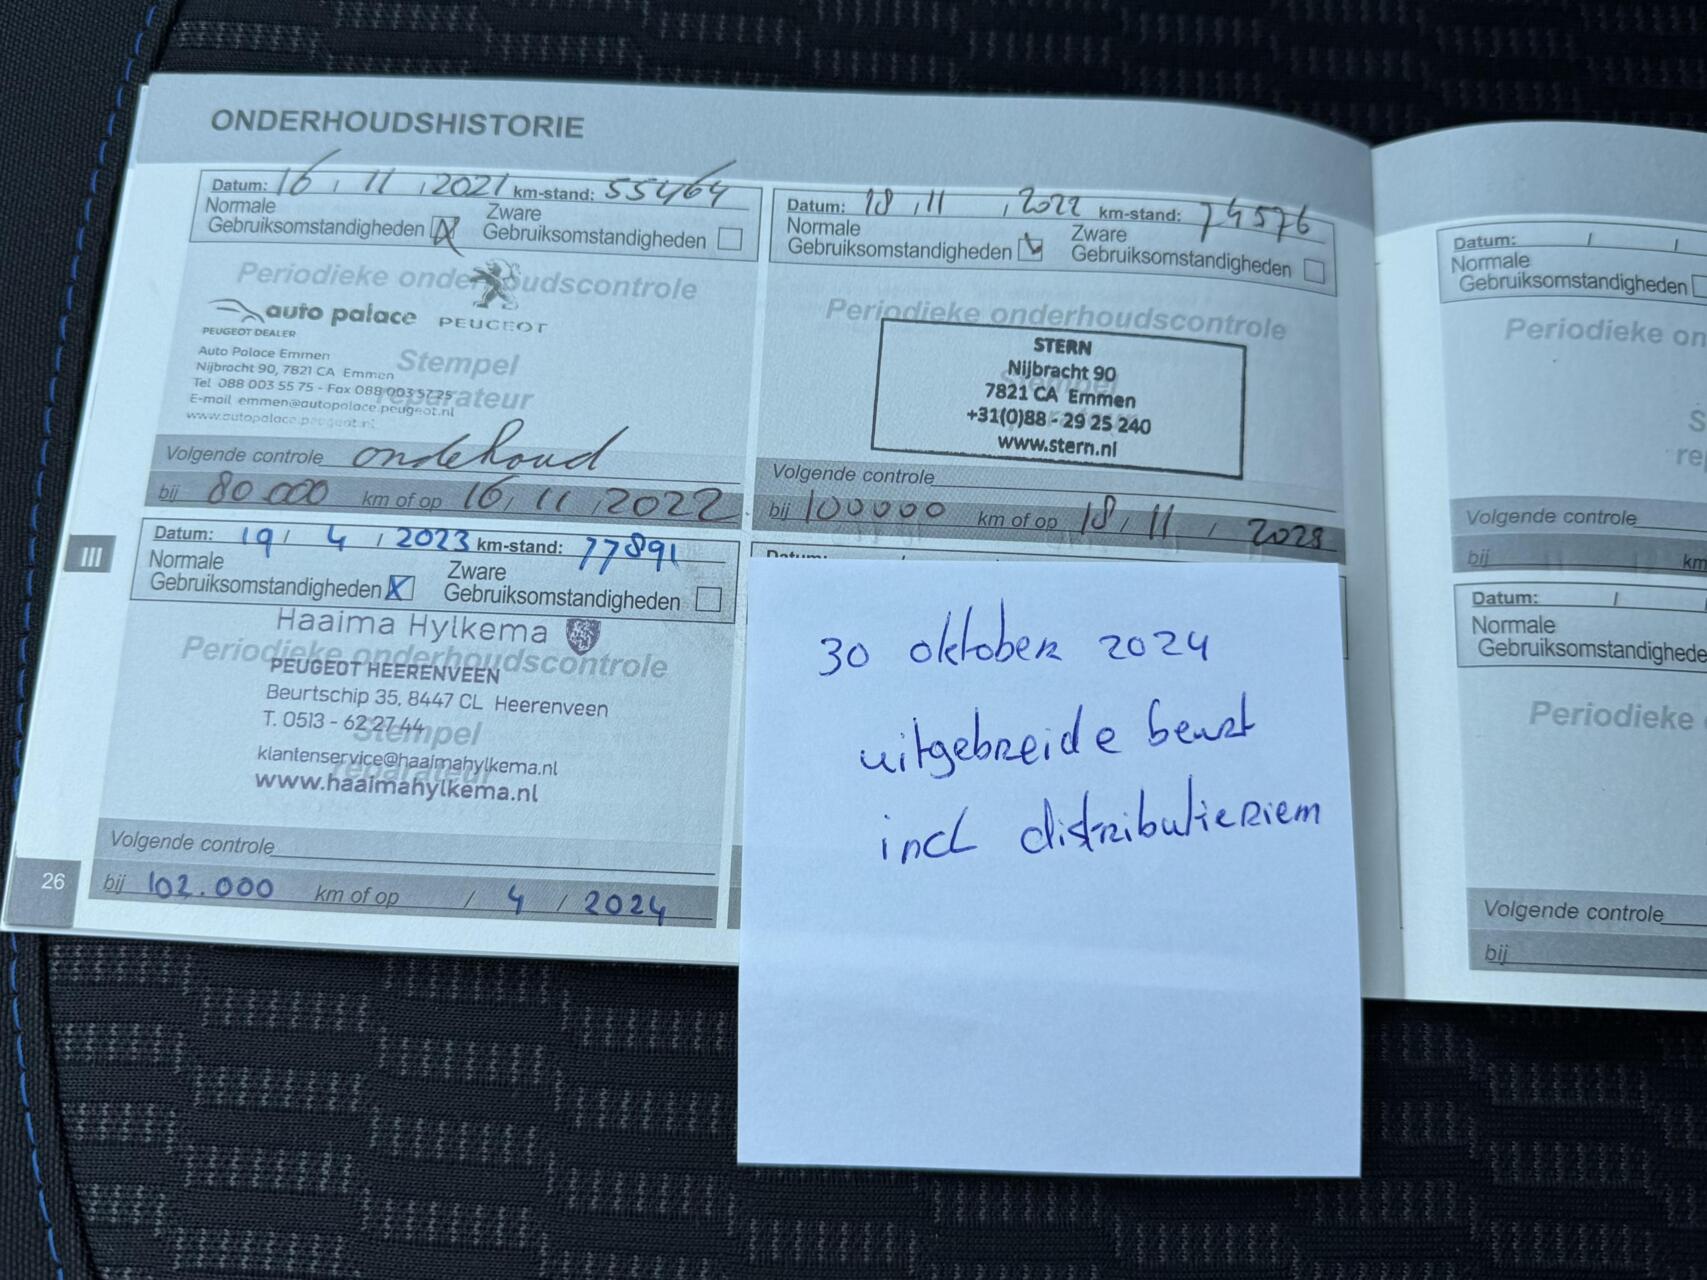 ONDERHOUDSHISTORIE
Datum: 16 / 11 / 2021 km-stand: 55464
Normale
Gebruiksomstandigheden
Zware
Gebruiksomstandigheden
Periodieke onderhoudscontrole
auto palace PEUGEOT
PEUGEOT DEALER
Auto Palace Emmen
Nijbracht 90, 7821 CA Emmen
Tel 088 003 55 75 - Fax 088 003 57 25
E-mail emmen@autopalace.peugeot.nl
www.autopalace.peugeot.nl
Stempel
reparateur
Volgende controle ondehoud
bij 80.000 km of op 16 / 11 / 2022
Datum: 18 / 11 / 2022 km-stand: 74576
Normale
Gebruiksomstandigheden
Zware
Gebruiksomstandigheden
Periodieke onderhoudscontrole
STERN
Nijbracht 90
7821 CA Emmen
+31(0)88 - 29 25 240
www.stern.nl
Volgende controle
bij 100000 km of op 18 / 11 / 2023
III
Datum: 19 / 4 / 2023 km-stand: 77891
Normale
Gebruiksomstandigheden X
Zware
Gebruiksomstandigheden
Haaima Hylkema
Periodieke onderhoudscontrole
PEUGEOT HEERENVEEN
Beurtschip 35, 8447 CL Heerenveen
T. 0513 - 62 27 44
Stempel
klantenservice@haaimahylkema.nl
reparateur
www.haaimahylkema.nl
Volgende controle
bij 102.000 km of op / 4 / 2024
26
Datum:
30 oktober 2024
uitgebreide beurt
incl distributieriem
Datum: / /
Normale
Gebruiksomstandigheden
Periodieke on
S
re
Volgende controle
bij km
Datum: / /
Normale
Gebruiksomstandighede
Periodieke
Volgende controle
bij